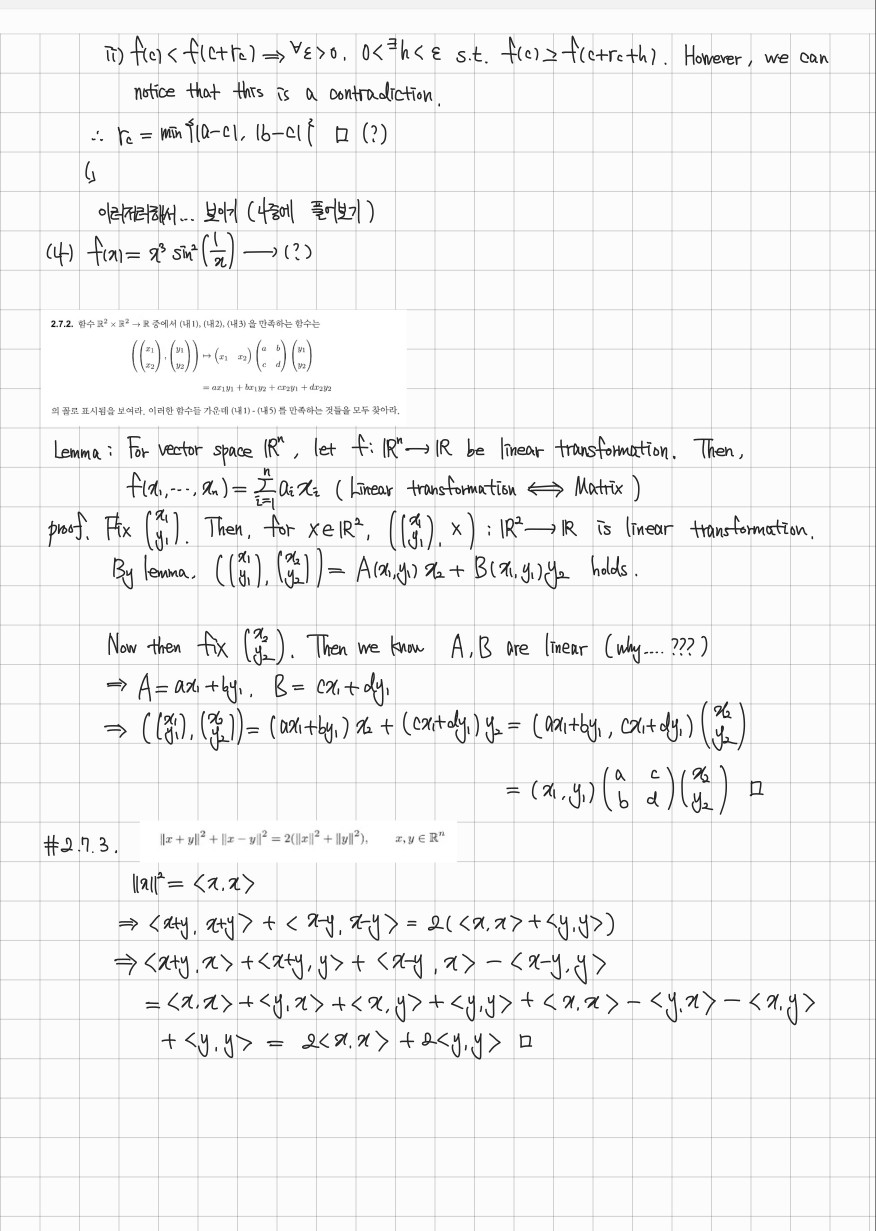 ii) f(c) < f(c+r_c) ⟹ ∀ε>0, 0<∃h<ε s.t. f(c) ≥ f(c+r_c+h). However, we can
notice that this is a contradiction.
∴ r_c = min{|a-c|, |b-c|} □ (?)
↳
이러저러해서... 보이기 (나중에 풀어보기)
(4) f(x) = x³ sin²(1/x) ⟶ (?)
2.7.2. 함수 ℝ² × ℝ² → ℝ 중에서 (내1), (내2), (내3) 을 만족하는 함수는
((x₁ x₂), (y₁ y₂)) ↦ (x₁ x₂) (a b c d) (y₁ y₂)
= ax₁y₁ + bx₁y₂ + cx₂y₁ + dx₂y₂
의 꼴로 표시됨을 보여라. 이러한 함수들 가운데 (내1) - (내5) 를 만족하는 것들을 모두 찾아라.
Lemma : For vector space ℝⁿ, let f: ℝⁿ ⟶ ℝ be linear transformation. Then,
f(x₁, ⋯, xₙ) = Σ_{i=1}^{n} aᵢxᵢ (Linear transformation ⟺ Matrix)
proof. Fix (x₁ y₁). Then, for x∈ℝ², ((x₁ y₁), x) : ℝ² ⟶ ℝ is linear transformation.
By lemma. ((x₁ y₁), (x₂ y₂)) = A(x₁,y₁) x₂ + B(x₁,y₁)y₂ holds.
Now then fix (x₂ y₂). Then we know A, B are linear (why.... ???)
⟹ A = ax₁+by₁, B = cx₁+dy₁
⟹ ((x₁ y₁), (x₂ y₂)) = (ax₁+by₁) x₂ + (cx₁+dy₁) y₂ = (ax₁+by₁, cx₁+dy₁) (x₂ y₂)
= (x₁, y₁) (a c b d) (x₂ y₂) □
#2.7.3. ‖x + y‖² + ‖x − y‖² = 2(‖x‖² + ‖y‖²), x, y ∈ ℝⁿ
‖x‖² = <x,x>
⟹ <x+y, x+y> + <x-y, x-y> = 2(<x,x> + <y,y>)
⟹ <x+y, x> + <x+y, y> + <x-y, x> - <x-y, y>
= <x,x> + <y,x> + <x,y> + <y,y> + <x,x> - <y,x> - <x,y>
+ <y,y> = 2<x,x> + 2<y,y> □